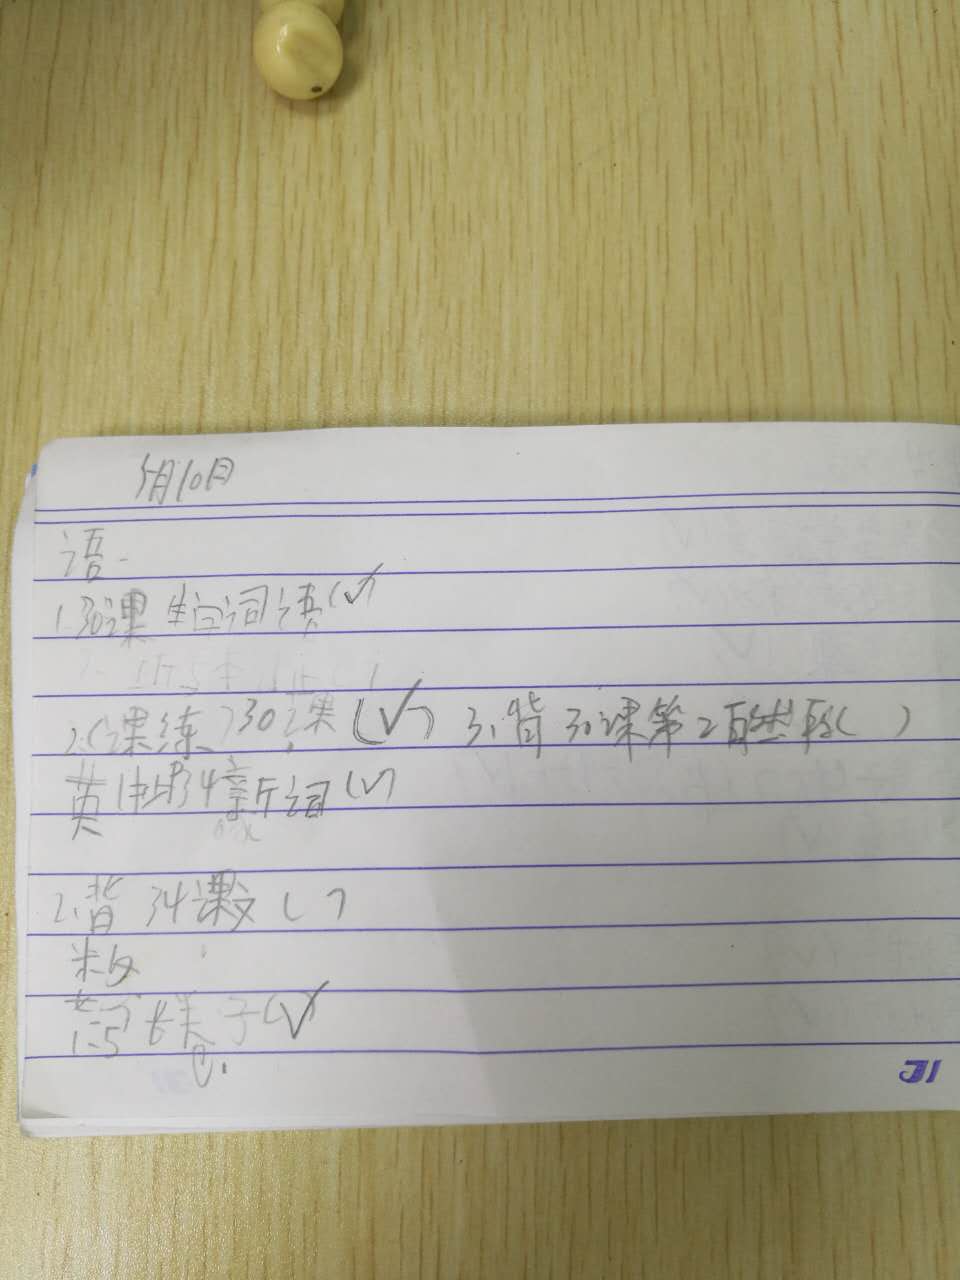 5月10日
语
1.30课生字词语(√)
2.《课练》30课(√) 3.背30课第2自然段( )
英 34新词(√)
2.背34课文( )
数
1-5 子(√)